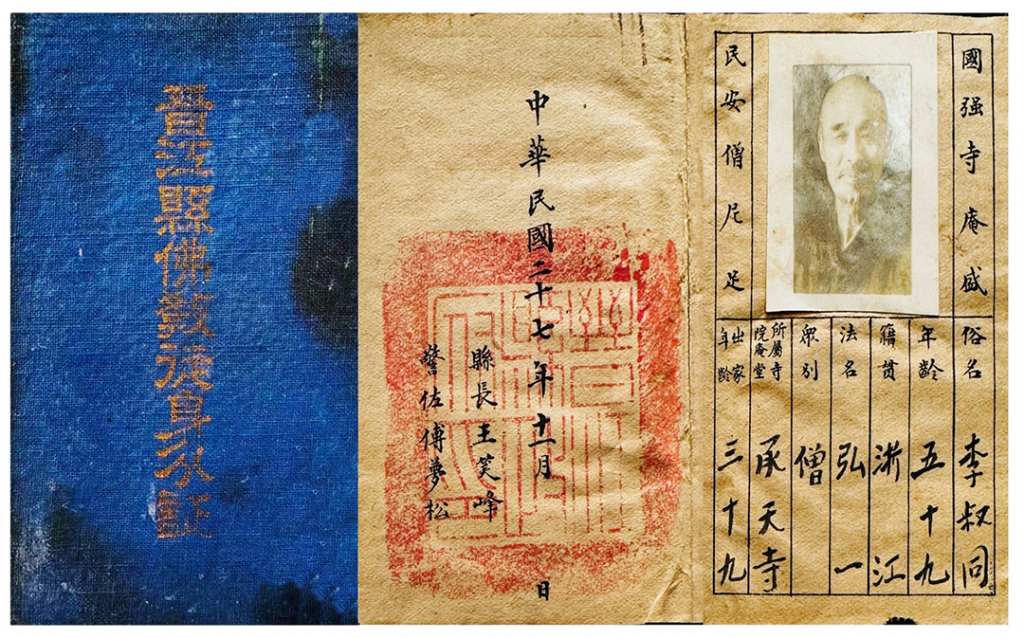 晉江縣佛教徒身分証
中華民國二十七年十一月 日
縣長王笑峰
警佐傅夢松
國强寺庵盛
民安僧尼足
俗名 李叔同
年齡 五十九
籍貫 浙江
法名 弘一
衆別 僧
所屬寺院庵堂 承天寺
出家年齡 三十九